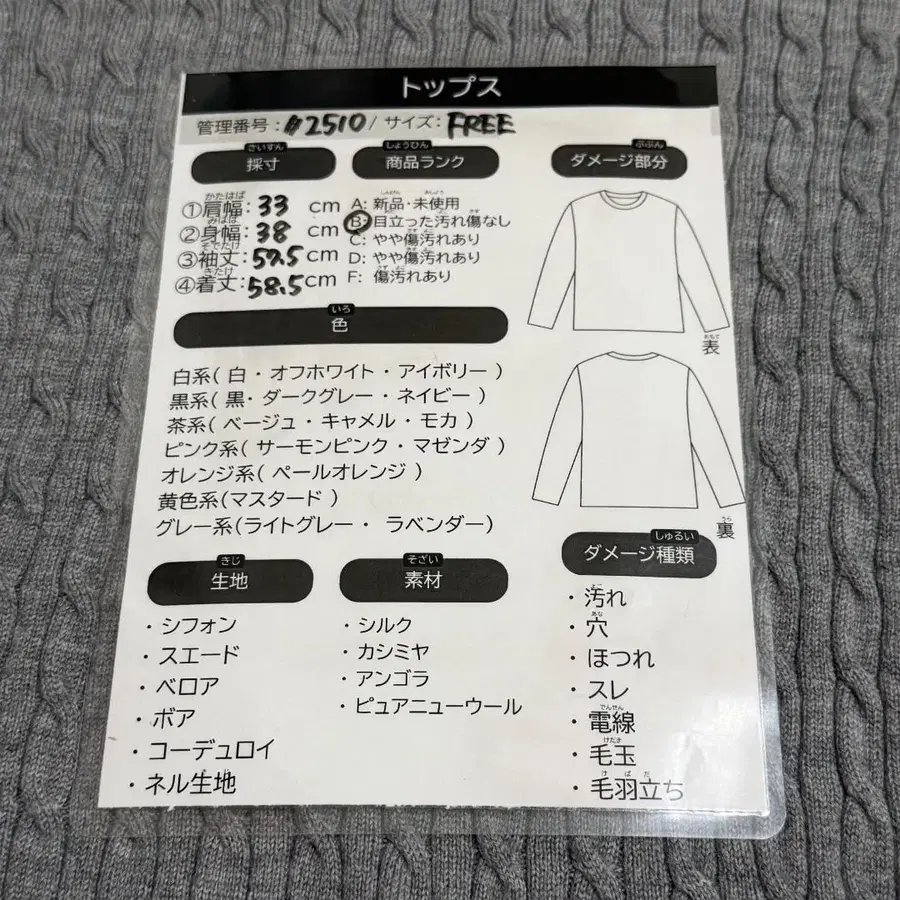 トップス
管理番号:#2510/サイズ:FREE
さいすん
採寸
しょうひん
商品ランク
ぶぶん
ダメージ部分
かたはば
①肩幅:33 cm
みはば
②身幅:38 cm
そでたけ
③袖丈:57.5cm
きたけ
④着丈:58.5cm
A: 新品・未使用
B:目立った汚れ傷なし
C: やや傷汚れあり
D: やや傷汚れあり
F: 傷汚れあり
おもて
表
うら
裏
いろ
色
白系( 白・オフホワイト・アイボリー )
黒系( 黒・ダークグレー・ネイビー )
茶系( ベージュ・キャメル・モカ )
ピンク系( サーモンピンク・マゼンダ )
オレンジ系( ペールオレンジ )
黄色系(マスタード )
グレー系(ライトグレー・ ラベンダー)
きじ
生地
・シフォン
・スエード
・ベロア
・ボア
・コーデュロイ
・ネル生地
そざい
素材
・シルク
・カシミヤ
・アンゴラ
・ピュアニューウール
しゅるい
ダメージ種類
よご
・汚れ
あな
・穴
・ほつれ
・スレ
でんせん
・電線
けだま
・毛玉
け ば だ
・毛羽立ち